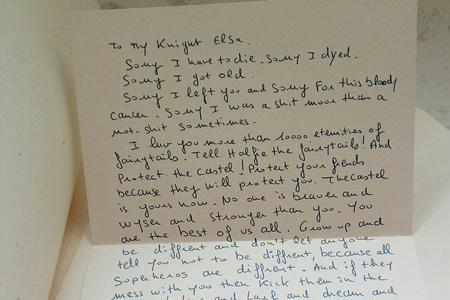 To my Knight Elsa.
Sorry I have to die. Sorry I dyed.
Sorry I got old.
Sorry I left you and Sorry For this bloody
cancer. Sorry I was a shit moor than a
not-shit sometimes.
I luv you more than 10000 eternities of
fairytails. Tell Halfie the fairytails! And
Protect the Castel! Protect your friends
because they will protect you. The castel
is yours now. No one is beaver and
wyser and stronger than you. You
are the best of us all. Grow up and
be diffrent and don't let anyone
tell you not to be diffrent, because all
Superheros are diffrent. And if they
mess with you then Kick them in the
and Laff and dream and